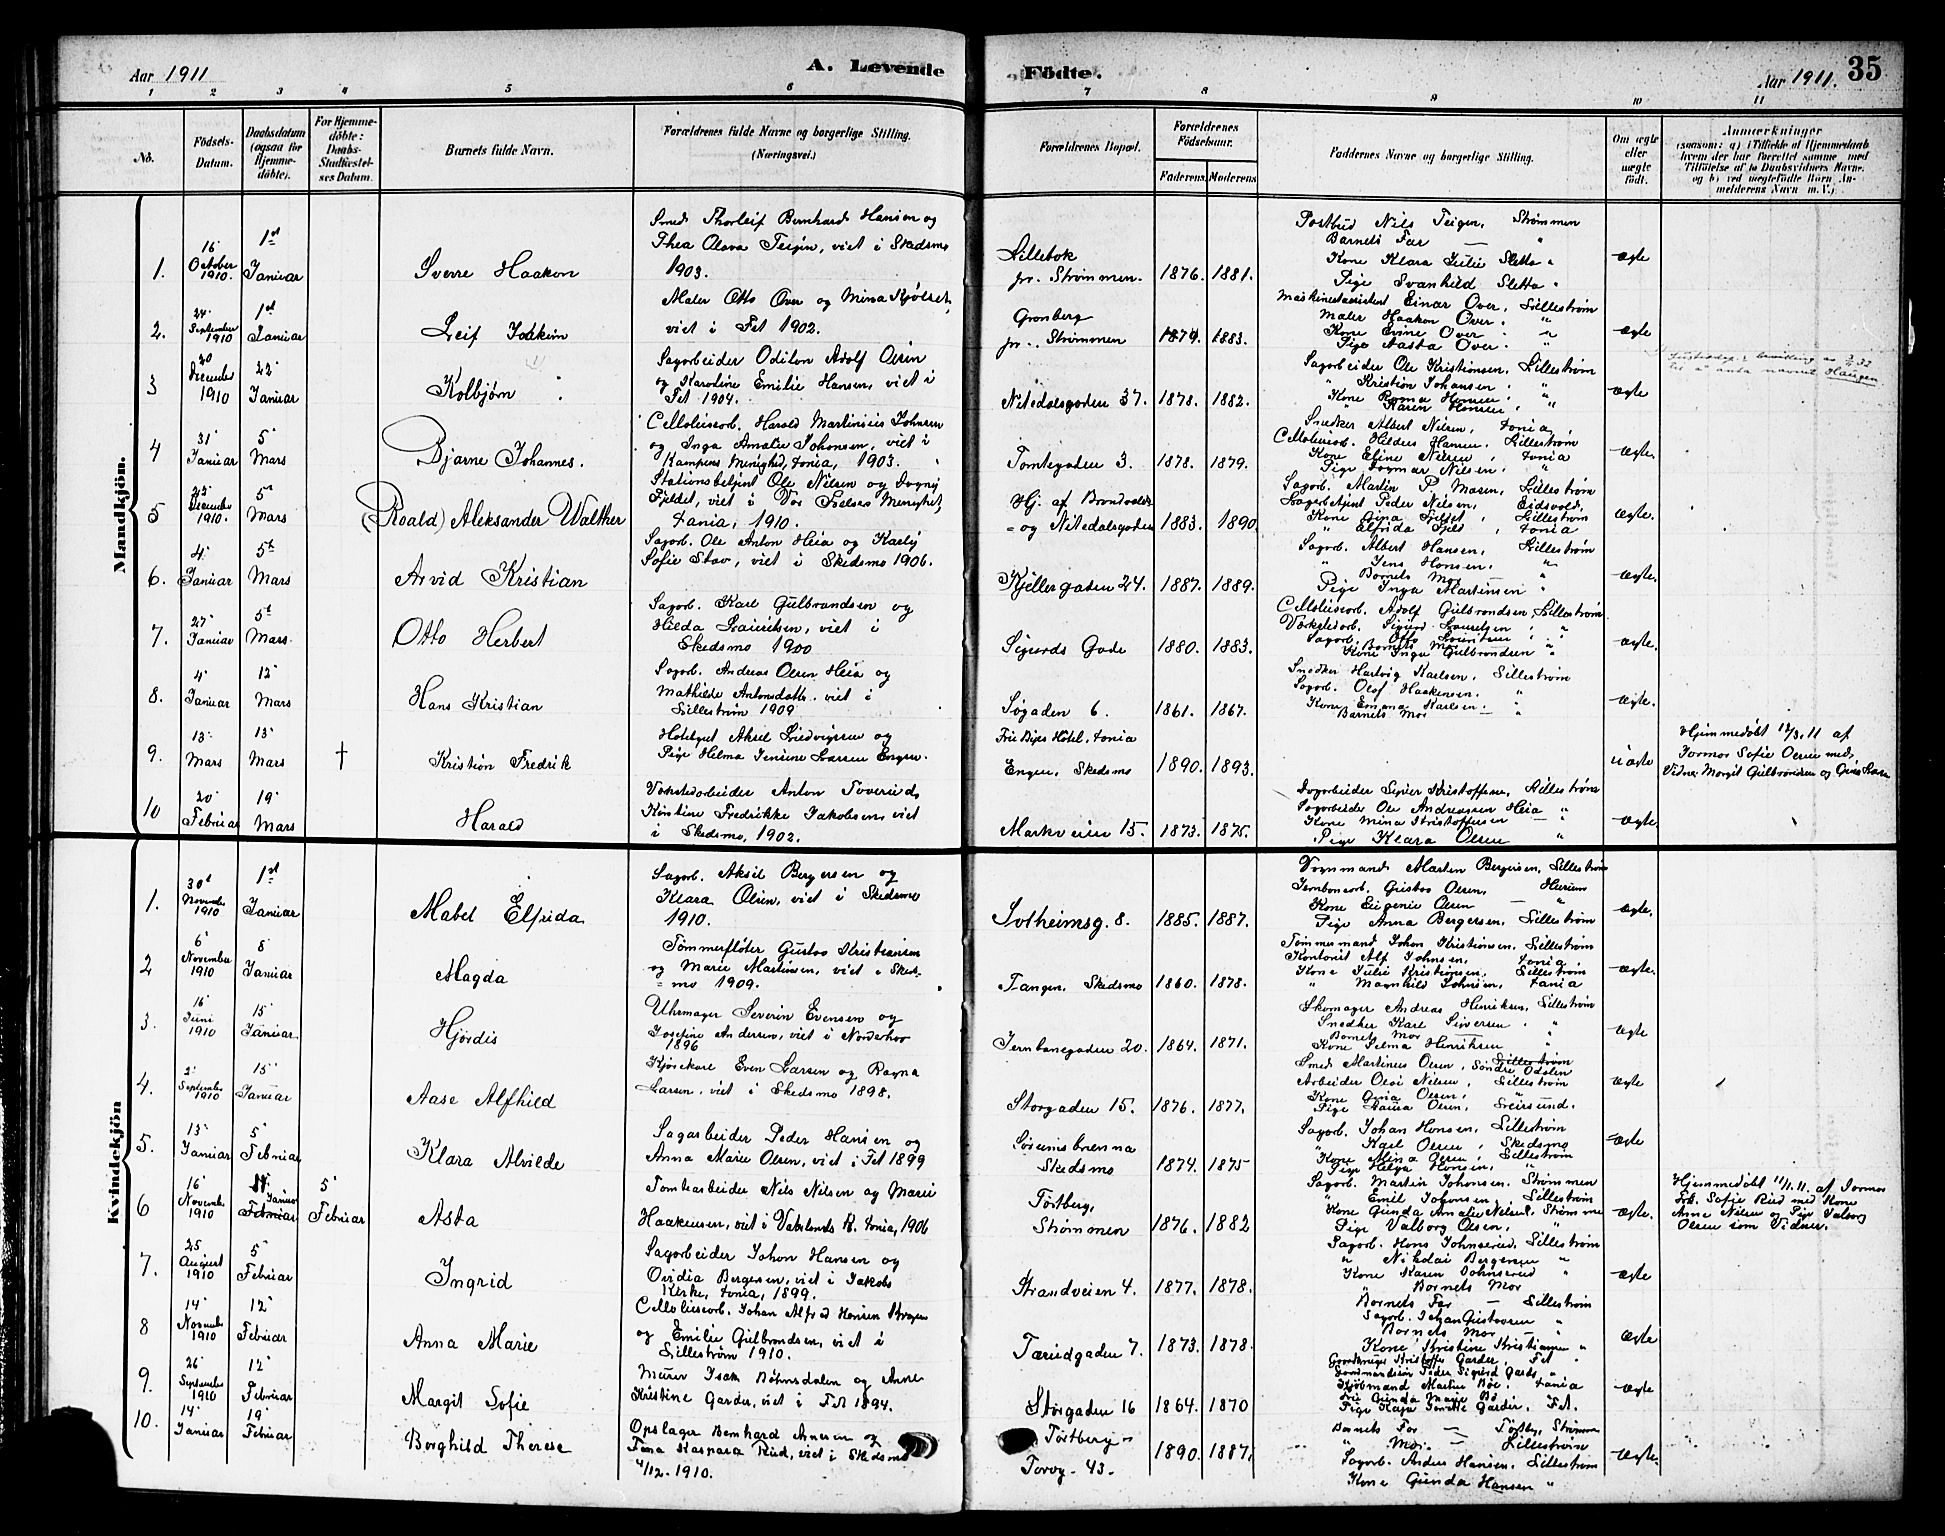 Aar 1911
A. Levende
Fødte.
Aar 1911.
35
1 2 3 4 5 6 7 8 9 10 11
No.
Fødsels-Datum.
Daabsdatum (ogsaa for Hjemme-døbte).
For Hjemme-døbte: Daabs-Stadfæstel-ses Datum.
Barnets fulde Navn.
Forældrenes fulde Navne og borgerlige Stilling. (Næringsvei.)
Forældrenes Bopæl.
Forældrenes Fødselsaar.
Faderens. Moderens.
Faddernes Navne og borgerlige Stilling.
Om ægte eller uægte født.
Anmærkninger
(saasom: a) i Tilfælde af Hjemmedaab
hvem der har forrettet samme med
Tilføielse af to Daabsvidners Navne,
og b) ved uægtefødte Børn An-
melderens Navn m. V.)
Mandkjön.
1. 16 October 1910. 1st Januar Sverre Haakon
Smed Thorleif Bernhard Hansen og
Thea Olava Teigen, viet i Skedsmo
1903.
Lillebok
pr. Strømmen. 1876. 1881.
Postbud Nils Teigen, Strømmen
Barnets Far — "
Kone Klara Julie Sletta "
Pige Svanhild Sletta "
ægte
2. 24 September 1910 1st Januar Leif Joakim
Maler Otto Over og Mina Kjølset,
viet i Fet 1902.
Grønberg
pr. Strømmen 1879. 1883.
Maskinestassistent Einar Over, Lillestrøm
Maler Haakon Over. "
Kone Evine Over. "
Pige Aasta Over. "
ægte
3 20 December 1910 22 Januar Kolbjørn
Sagarbeider Odilon Adolf Olsen
og Karoline Emilie Hansen, viet i
Fet 1904.
Nitedalsgaden 37. 1878. 1882.
Sagarbeider Ole Kristiansen, Lillestrøm
" Kristian Johansen "
Kone Ragna Hansen "
" Karen Hansen "
ægte
til at anta navnet Haugen
4 31 Januar 5 Mars Bjarne Johannes.
Cellulosearb. Harald Martinius Johnsen
og Inga Amalie Johansen, viet i
Kampens Menighed, Xania, 1903.
Tomtegaden 3. 1878. 1879.
Snedker Albert Nilsen, Xania,
Cellulosearb. Hildus Hansen, Lillestrøm
Kone Eline Nilsen, Xania
Pige Dagmar Nilsen "
ægte.
5 25 December 1910. 5te Mars (Roald) Aleksander Walther
Stationsbetjent Ole Nilsen og Dagny
Fjeldet, viet i Vor Frelsers Menighet,
Xania, 1910.
Hj. af Brandvalds
= og Nitedalsgaden 1883. 1890
Sagarb. Martin P. Moen, Lillestrøm
Lagerbetjent Peder Nilsen, Eidsvold,
Kone Gina Fjeldet, Lillestrøm
" Elfrida Fjeld, Xania
ægte.
6. 4 Januar 5te Mars Arvid Kristian
Sagarb. Ole Anton Heia og Karly
Sofie Stav, viet i Skedsmo 1906.
Kjellergaden 24. 1887. 1889.
Sagarb. Albert Hansen, Lillestrøm
" Jens Hansen, "
Barnets Mor — "
Pige Inga Martinsen "
ægte.
7. 27 Januar 5te Mars. Otto Herbert
Sagarb. Karl Gulbrandsen og
Hilda Lauritsen, viet i
Skedsmo 1900
Sigurds Gade 1880. 1883.
Cellulosearb. Adolf Gulbrandsen, Lillestrøm
Værkstedarb. Sigurd Lauritsen, "
Sagarb. Otto Lauritsen "
Barnets Mor "
Kone Inga Gulbrandsen "
ægte.
8. 4 Januar 12 Mars Hans Kristian
Sagarb. Andreas Olsen Heia og
Mathilde Antonsdatter. viet i
Lillestrøm 1909
Søgaden 6. 1861. 1867.
Snedker Hartvig Karlsen, Lillestrøm
Sagarb. Olaf Haakensen. "
Kone Emma Karlsen — "
Barnets Mor "
ægte.
9. 13 Mars 13 Mars † Kristian Fredrik
Hotelgut Aksel Ludvigsen og
Pige Helma Jensine Larsen Engen.
Frü Byes Hôtel, Xania
Engen, Skedsmo 1890. 1893.
uægte
Hjemmedøbt 12/3.11 af
Jormor Sofie Olsen med
Vidner Margit Gulbrandsen og
10 20 Februar 19 Mars Harald
Værkstedarbeider Anton Toverud,
Kristine Fredrikke Jakobsen, viet
i Skedsmo, 1902.
Markveien 15. 1873. 1875.
Sagarbeider Sigver Kristoffersen, Lillestrøm
Sagarbeider Ole Andreassen Heia "
Kone Mina Kristoffersen — "
Pige Klara Olsen "
ægte.
Kvindekjön
1. 30t November 1910 1st Januar Mabel Elfrida
Sagarb. Aksel Bergersen og
Klara Olsen, viet i Skedsmo
1910.
Solheimsg. 8. 1885. 1887.
Vognmand Marten Bergersen, Lillestrøm
Jernbanearb. Gustav Olsen, Hurum
Kone Eugenie Olsen — "
Pige Anna Bergersen, Lillestrøm
ægte.
2 6 November 1910 8 Januar Magda
Tømmerfløter Gustav Kristiansen
og Marie Martinsen, viet i Skeds-
= mo 1909.
Tangen, Skedsmo 1860. 1878.
Tømmermand Johan Kristiansen, Lillestrøm
Kontorist Alf Johnsen, Xania
Kone Julie Kristiansen, Lillestrøm
" Magnhild Johnsen, Xania
ægte.
3. 16 Juni 1910 15 Januar. Hjørdis
Uhrmager Severin Evensen og
Josefine Andersen, viet i Norderhov
1896
Jernbanegaden 20. 1864. 1871.
Skomager Andreas Henriksen, Lillestrøm
Snedker Karl Siversen "
Barnets Mor — "
Kone Selma Henriksen "
ægte
4. 2 September 1910 15 Januar Aase Alfhild
Kjørekarl Even Larsen og Ragna
Larsen, viet i Skedsmo 1898.
Storgaden 15. 1876. 1877.
Smed Martinus Olsen, Lillestrøm Søndre Odalen
Arbeider Olai Nilsen, Lillestrøm
Kone Gina Olsen, "
Pige Laura Olsen,
ægte
5. 13 Januar 5 Februar Klara Alvilde
Sagarbeider Peder Hansen og
Anna Marie Olsen, viet i Fet 1899
Skedsmo 1874. 1875
Sagarb. Johan Hansen, Lillestrøm
" Karl Olsen, Skedsmo
Kone Mina Olsen, Lillestrøm
Pige Helga Hansen, "
ægte
6 16 November 1910 11 Januar Februar 5 Februar Asta
Tomtearbeider Nils Nilsen og Marie
Haakensen, viet i Vaalerengs K. Xania, 1906
Tortberg,
Strømmen 1876. 1882
Sagarb. Martin Johansen, Strømmen
" Emil Johansen, Lillestrøm
Kone Gunda Amalie Nilsen, Strømmen
Pige Valborg Olsen, "
ægte.
Hjemmedøbt 11/1.11. af Jormor
Frk. Sofie Rud med Kone
Anne Nilsen og Pige Valborg
Olsen som Vidner.
7. 25 August 1910 5 Februar Ingrid
Sagarbeider Johan Hansen og
Ovidia Bergersen, viet i Jakobs
Kirke, Xania, 1899.
Strandveien 4. 1877. 1878.
Sagarb. Hans Johnsrud, Lillestrøm
" Nikolai Bergersen "
Kone Karen Johnsrud "
Barnets Mor "
ægte
8 14 November 1910 12 Februar Anna Marie
Cellulosearb. Johan Alfred Hansen
og Emilie Gulbrandsen, viet i
Lillestrøm 1910.
Tærudgaden 7. 1873. 1878.
Barnets Far — Lillestrøm
Sagarb. Johan Gustavsen "
Barnets Mor — "
Kone Kristine Kristiansen "
ægte
9. 26 September 1910 12 Februar Margit Sofie
Murer Isak Böhnsdalen og Anne
Kristine Garder, viet i Fet 1894.
Storgaden 16 1864. 1870
Gaardbruger Kristoffer Garder, Fet.
Kjøbmand Martin Böe. Xania
Pige Garder, Fet.
ægte
10. 14 Januar 19 Februar Borghild Therese
Opslager Bernhard Ansen og
Tina Kaspara Rud, viet i Skedsmo
4/12-1910.
Tortberg-
Torvg. 43. 1890. 1887.
Barnets Far — Tortberg, Strømmen
" Mor. — Lillestrøm
Sagarb. Anders Hansen, Lillestrøm
Kone Gunda Hansen "
ægte.